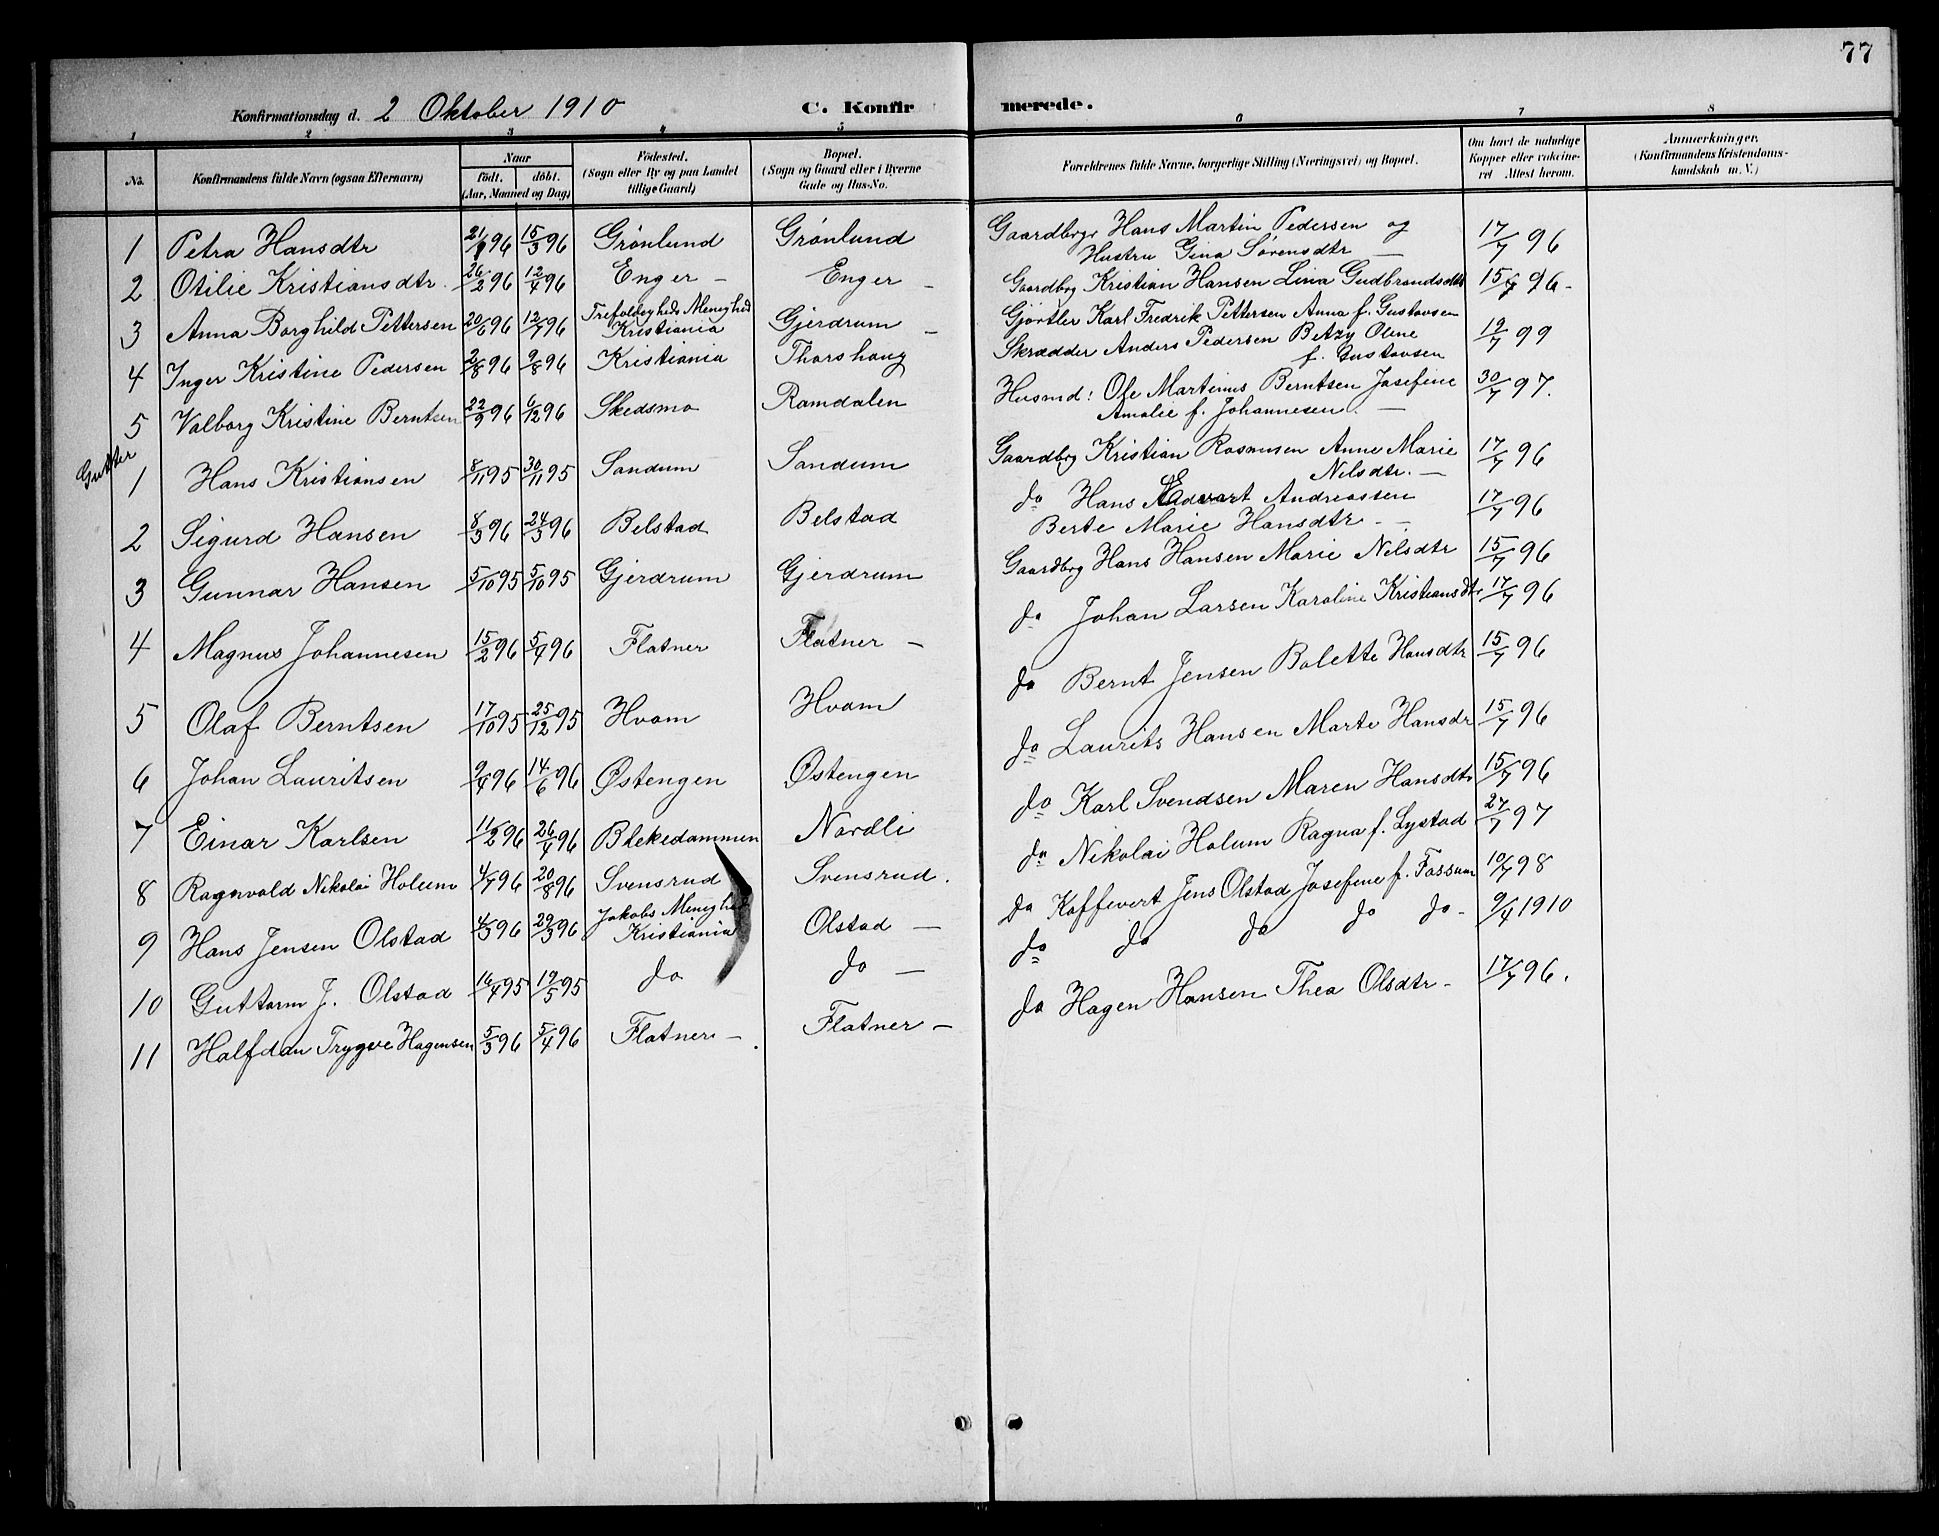 77
Konfirmationsdag d. 2 Oktober 1910 C. Konfirmerede.
1 2 3 4 5 6 7 8
No. Konfirmandens fulde Navn (ogsaa Efternavn) Naar födt. döbt. (Aar, Maaned og Dag) Födested. (Sogn eller By og paa Landet tillige Gaard) Bopæl. (Sogn og Gaard eller i Byerne Gade og Hus-No. Forældrenes fulde Navne, borgerlige Stilling (Næringsvei) og Bopæl. Om havt de naturlige Kopper eller vakcineret Attest herom. Anmærkninger. (Konfirmandens Kristendomskundskab m. V.)
1 Petra Hansdtr 21/1 96 15/3 96 Grönlund Grönlund Gaardbgr Hans Martin Pedersen og Hustru Gina Sörensdtr — 17/7 96
2 Otilie Kristiansdtr. 26/2 96 12/4 96 Enger — Enger — Gaardbg Kristian Hansen Lina Gudbrandsdtr 15/7 96 -
3 Anna Borghild Pettersen 20/6 96 12/7 96 Trefoldigheds Menighed Kristiania Gjerdrum — Gjörtler Karl Fredrik Pettersen Anna f. Gustavsen
4 Inger Kristine Pedersen 2/8 96 9/8 96 Kristiania Thorshaug Skrædder Anders Pedersen Betzy Oline f. Gustavsen 19/7 99
5 Valborg Kristine Berntsen 22/9 96 6/12 96 Skedsmo Ramdalen Husmd: Ole Martinus Berntsen Josefine Amalie f. Johannesen. — 30/7 97.
Gutter
1 Hans Kristiansen 8/11 95 30/11 95 Sandum Sandum Gaardbg Kristian Rasmusen Anne Marie Nilsdtr. — 17/7 96
2 Sigurd Hansen 8/3 96 24/3 96 Belstad Belstad do Hans Edvart Andreassen Berte Marie Hansdtr — 17/7 96
3 Gunnar Hansen 5/10 95 5/10 95 Gjerdrum Gjerdrum Gaardbg Hans Hansen Marie Nilsdtr 15/7 96
4 Magnus Johannesen 15/2 96 5/4 96 Flatner Flatner — do Johan Larsen Karoline Kristiansdtr 17/7 96
5 Olaf Berntsen 17/10 95 25/12 95 Hvam Hvam do Bernt Jensen Bolette Hansdtr 15/7 96
6 Johan Lauritsen 9/4 96 14/6 96 Østengen Østengen do Laurits Hansen Marte Hansdr 15/7 96
7 Einar Karlsen 11/2 96 26/4 96 Blekedammen Nordli do Karl Svendsen Maren Hansdtr 15/7 96
8 Ragnvald Nikolai Holum 4/7 96 20/8 96 Svensrud Svensrud. do Nikolai Holum Ragna f. Lystad 27/7 97
9 Hans Jensen Olstad 4/3 96 29/3 96 Jakobs Menighed Kristiania Olstad — do Kaffevert Jens Olstad Josefine f. Fossum 10/7 98
10 Guttorm J. Olstad 16/4 95 19/5 95 do do — do do do do do - 9/4 1910
11 Halfdan Trygve Hagensen 5/3 96 5/4 96 Flatner — Flatner — do Hagen Hansen Thea Olsdtr - 17/7 96.